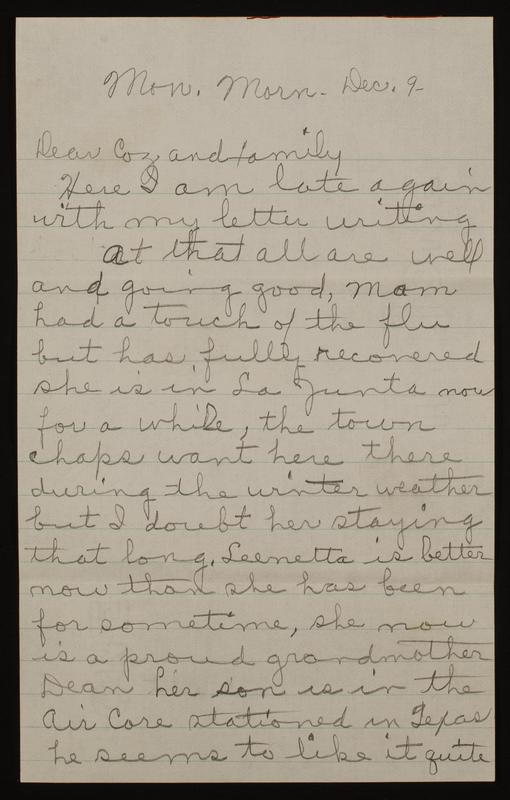 Mon. Morn. Dec. 9-
Dear Coz, and family
Here I am late again
with my letter writing
at that all are well
and going good, Mom
had a touch of the flu
but has fully recovered
she is in La Junta now
for a while, the town
chaps want here there
during the winter weather
but I doubt her staying
that long. Leenetta is better
now than she has been
for sometime, she now
is a proud grandmother
Dean her son is in the
Air Core stationed in Texas
he seems to like it quite